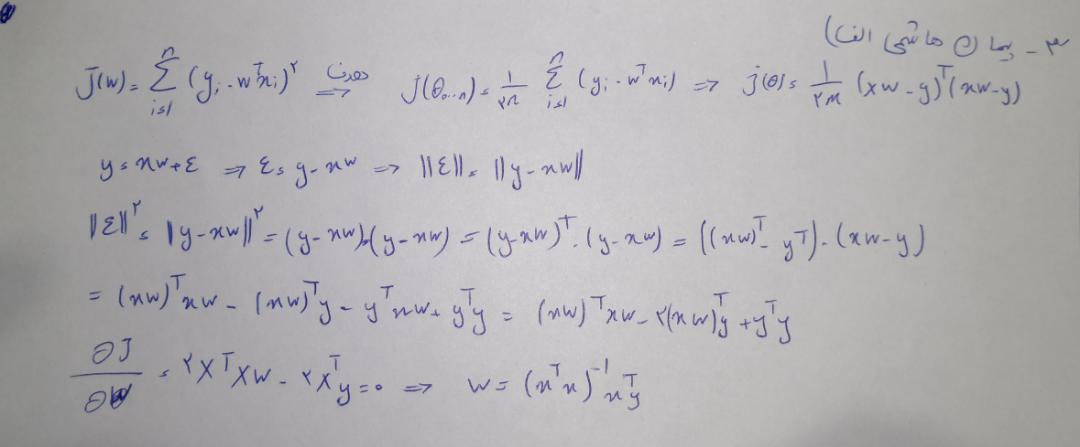 ۳- پیمان هاشمی الف)
J(w) = Σ_{i=1}^{n} (y_i - w^T x_i)^۲ ⇒ J(θ_{0...n}) = \frac{1}{۲n} Σ_{i=1}^{n} (y_i - w^T x_i) ⇒ j(θ) = \frac{1}{۲m} (xw - y)^T (xw - y)
y = xw + ε ⇒ ε = y - xw ⇒ ||ε|| = ||y - xw||
||ε||^۲ = ||y - xw||^۲ = (y - xw).(y - xw) = (y - xw)^T . (y - xw) = ((xw)^T - y^T) . (xw - y)
= (xw)^T xw - (xw)^T y - y^T xw + y^T y = (xw)^T xw - ۲(xw)^T y + y^T y
\frac{∂J}{∂w} = ۲X^T X w - ۲X^T y = ۰ ⇒ w = (x^T x)^{-1} x^T y